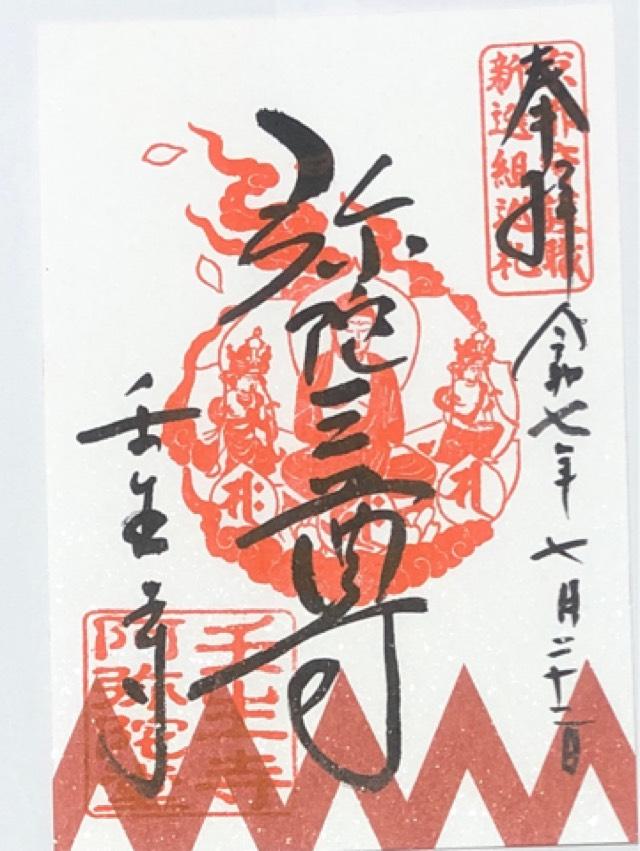 奉拝
京都守護職
新選組巡礼
令和七年七月二十二日
弥陀三尊
壬生寺
壬生寺
阿弥陀堂